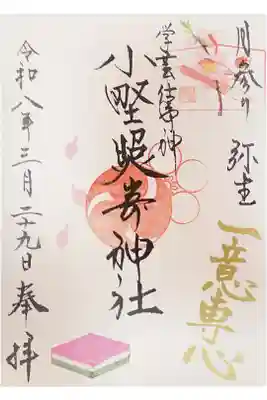 月参り 弥生
一意専心
学芸仕事神
小野照崎神社
令和八年三月二十九日奉拝